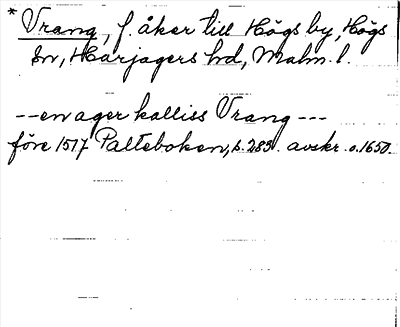 * Vrang, f. åker till Högs by, Högs
sn, Harjagers hd, Malm. l.
-- en ager kalliss Vrang ---
före 1517 Palteboken, s. 283. avskr. o. 1650.